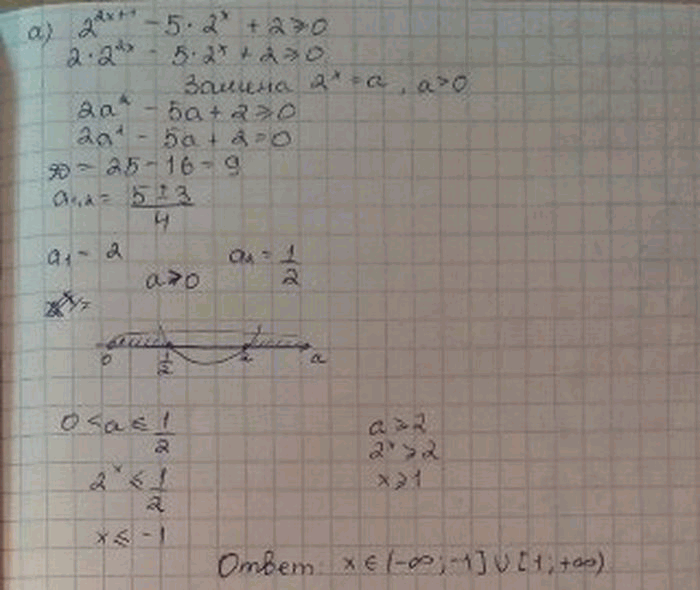 а) 2^(2x+1) - 5·2^x + 2 ⩾ 0
2·2^(2x) - 5·2^x + 2 ⩾ 0
Замена 2^x = a, a>0
2a² - 5a + 2 ⩾ 0
2a² - 5a + 2 = 0
D = 25 - 16 = 9
a₁,₂ = (5±3)/4
a₁ = 2 a₂ = 1/2
a>0
0 1/2 2 a
0 < a ⩽ 1/2 a ⩾ 2
2^x ⩽ 1/2 2^x ⩾ 2
x ⩽ -1 x ⩾ 1
Ответ: x ∈ (-∞; -1] ∪ [1; +∞)